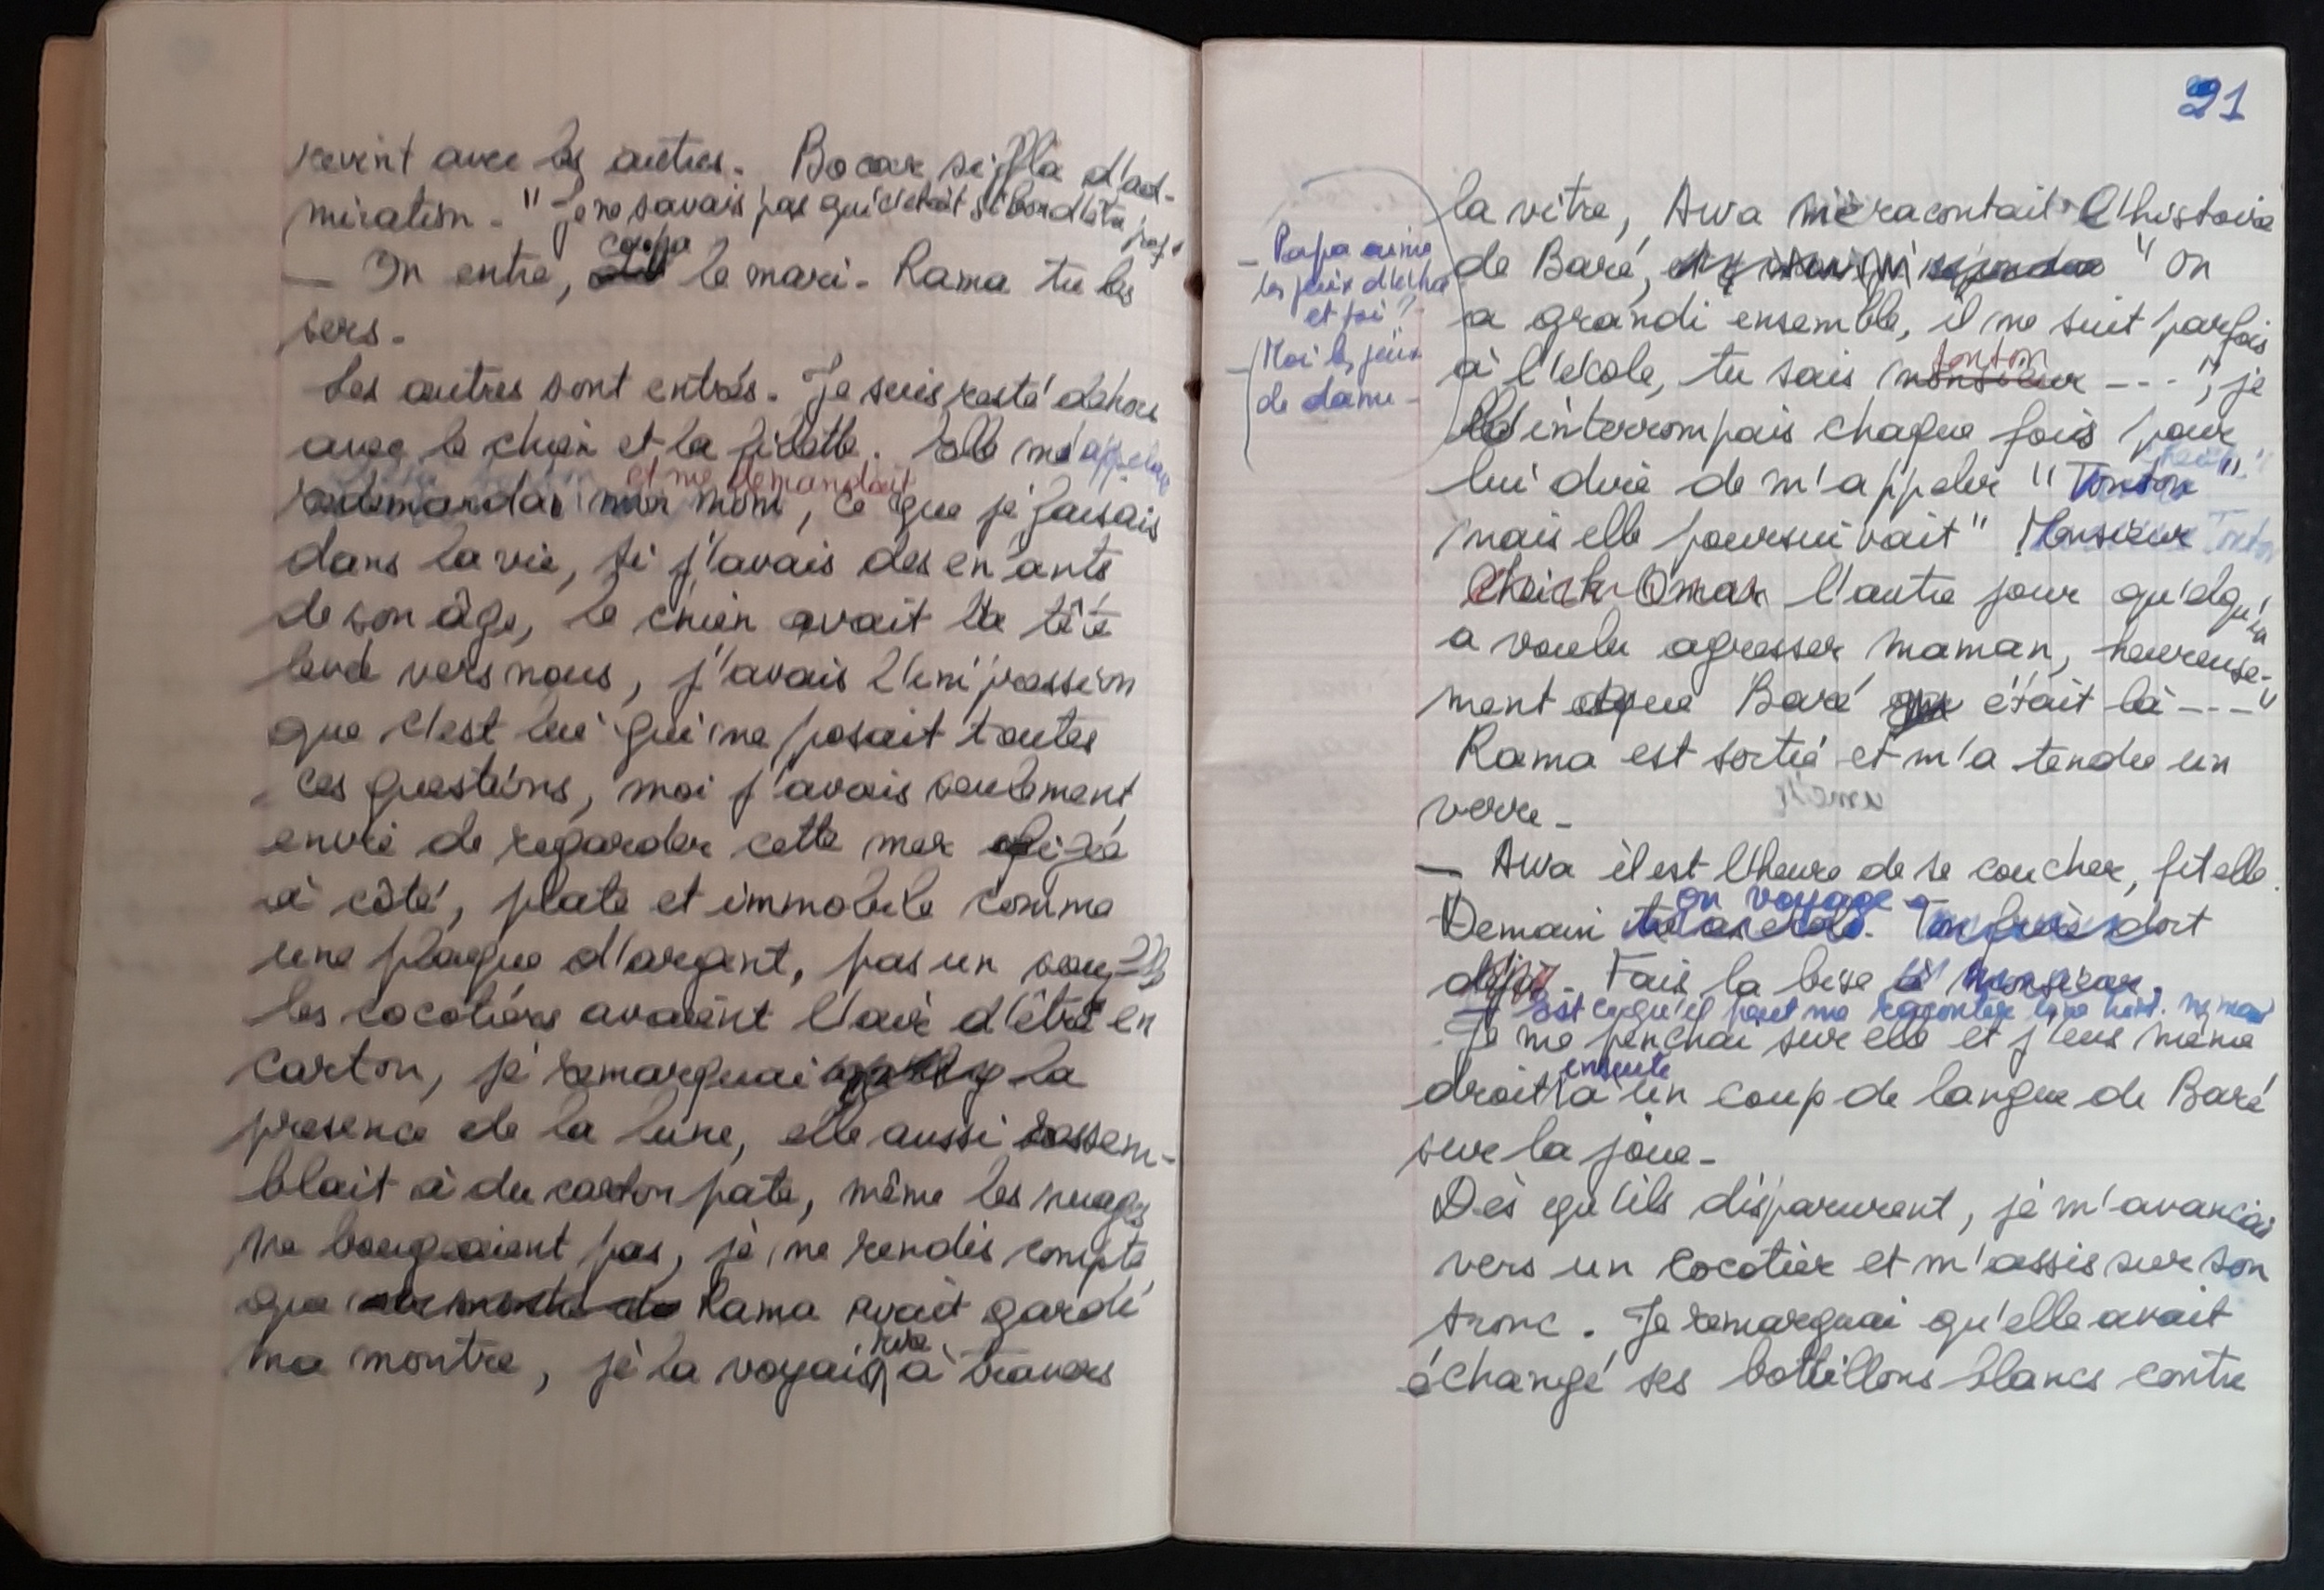 revint avec les autres. Bocar siffla d'ad-
miration. "Je ne savais pas qu'il était si bon d'être prof"
— On entre, coupa le mari. Rama tu les
sers.
Les autres sont entrés. Je suis resté dehors
avec le chien et la fillette. Elle m'appela
et me demandait
mon nom, ce que je faisais
dans la vie, si j'avais des enfants
de son âge, le chien avait la tête
levé vers nous, j'avais l'impression
que c'est lui qui me posait toutes
ces questions, moi j'avais seulement
envie de regarder cette mer figée
à côté, plate et immobile comme
une plaque d'argent, pas un
les cocotiers avaient l'air d'être en
carton, je remarquai la
présence de la lune, elle aussi ressem-
blait à du carton pate, même les nuages
ne bougeaient pas, je me rendis compte
que Rama avait gardé
ma montre, je la voyais rire à travers
21
la vitre, Awa me racontait l'histoire
de Baré, "on
a grandi ensemble, il me suit parfois
à l'école, tu sais tonton ---", je
l'interrompais chaque fois pour
lui dire de m'appeler "Tonton"
mais elle poursuivait "Monsieur Tonton
Cheikh Omar l'autre jour quelqu'un
a voulu agresser maman, heureuse-
ment que Baré était là ---"
Rama est sortie et m'a tendu un
verre.
— Awa il est l'heure de se coucher, fit elle.
Demain on voyage. Ton frère dort
déjà. Fais la bise à monsieur.
— Est ce qu'il peut me raconter une hist.
Je me penchai sur elle et j'eus même
droit ensuite à un coup de langue de Baré
sur la joue.
Dès qu'ils disparurent, je m'avançais
vers un cocotier et m'assis sur son
tronc. Je remarquai qu'elle avait
échangé ses bottillons blancs contre
— Papa aime
les jeux d'échec
et toi ?
— Moi les jeux
de dame -